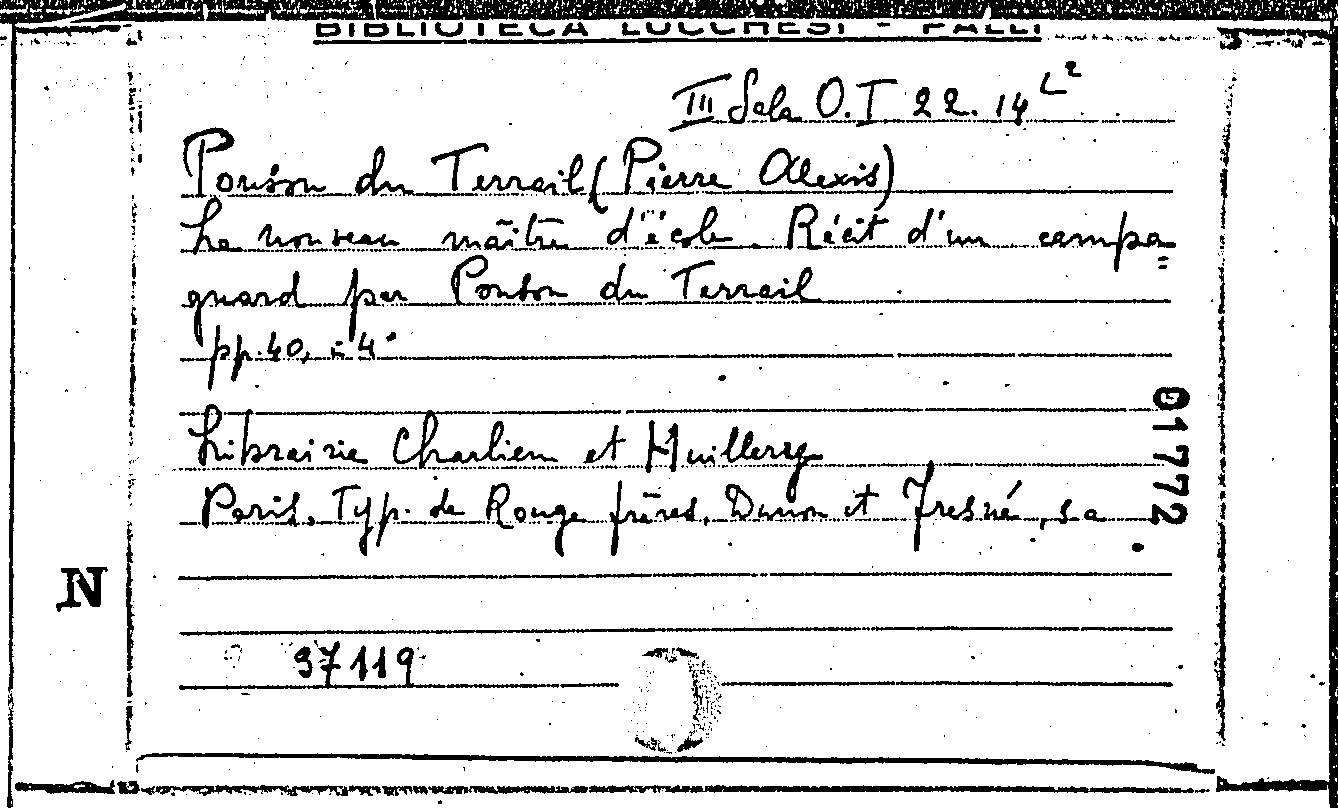 BIBLIOTECA LUCCHESI - PALLI
III Sala O. I 22. 14 L²
Ponson du Terrail (Pierre Alexis)
Le nouveau maître d'école. Récit d'un campa=
gnard par Ponson du Terrail
pp. 40, in 4°
Librairie Charlieu et Huillery
Paris. Typ. de Rouge frères, Dunon et Fresné, s.a
01772
N
37119